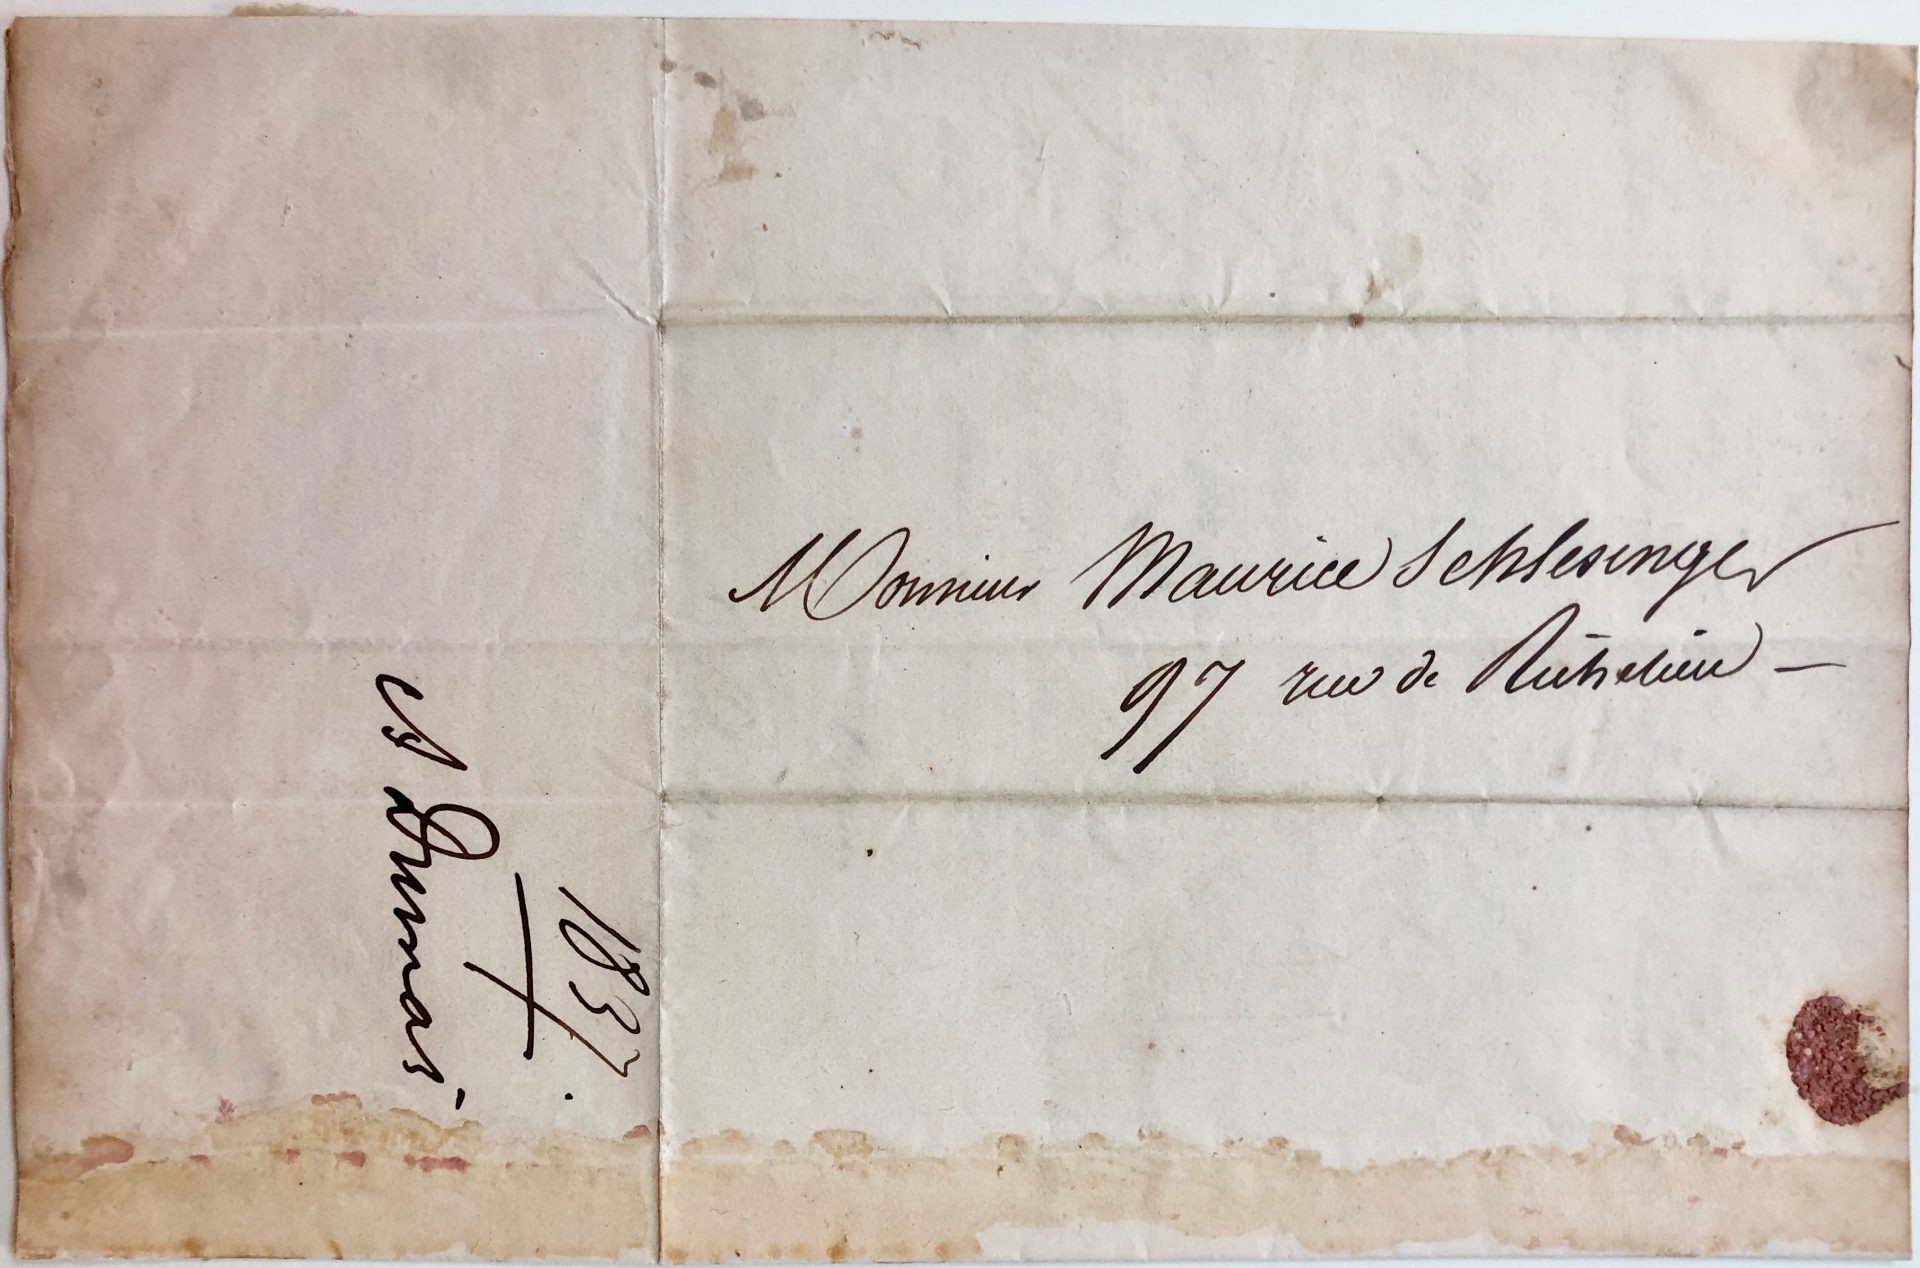 Monsieur Maurice Schlesinger
97 rue de Richelieu –
1837.
Al Dumas